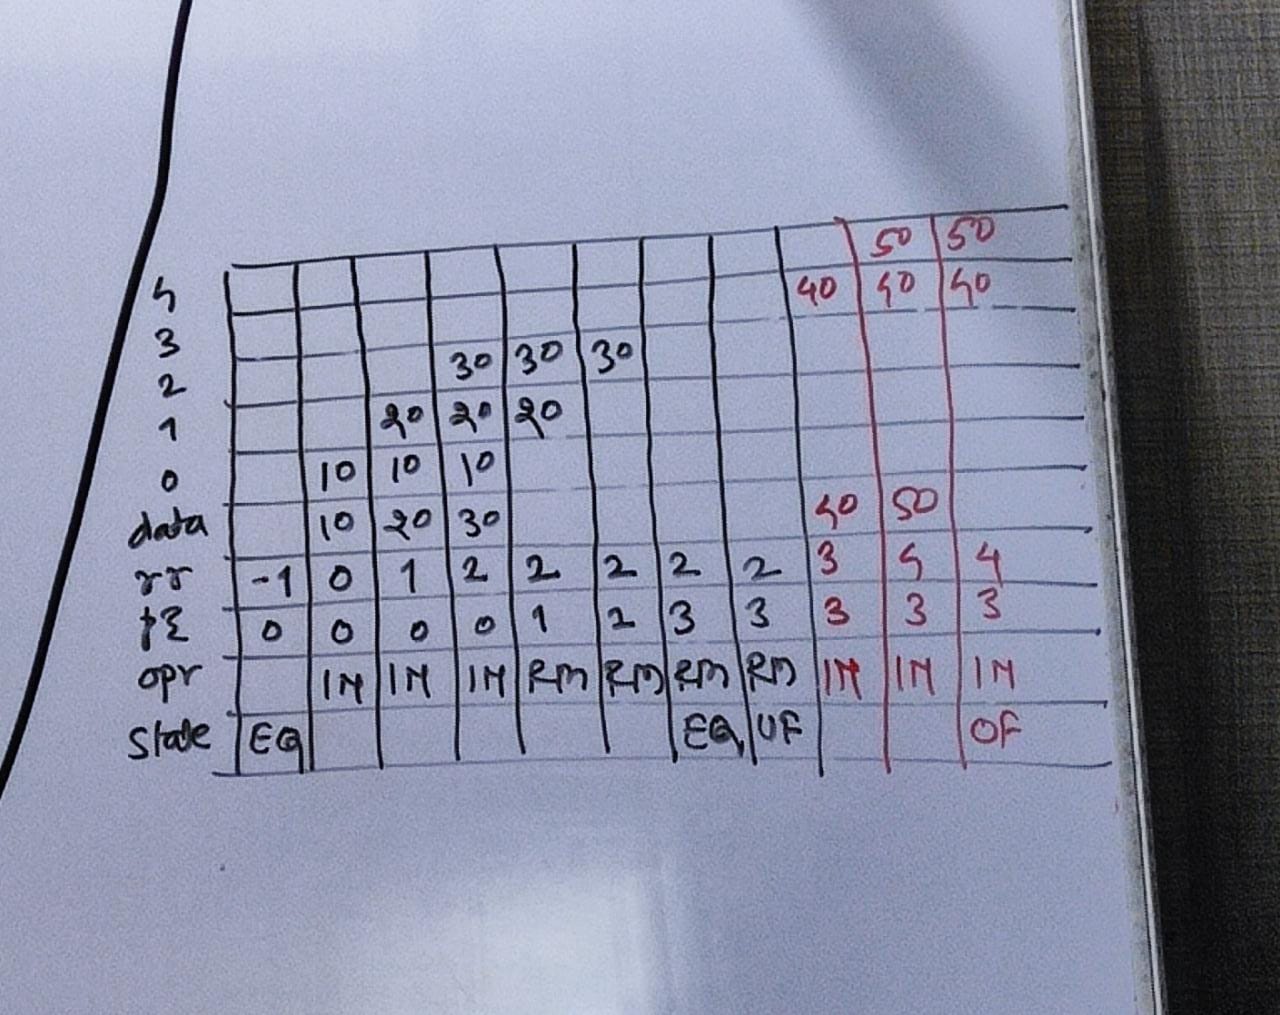 50 50
4 40 40 40
3
2 30 30 30
1 20 20 20
0 10 10 10
data 10 20 30 40 50
rr -1 0 1 2 2 2 2 2 3 4 4
0 0 0 0 1 2 3 3 3 3 3
opr IN IN IN RM RM RM RM IN IN IN
State EQ EQ UF OF